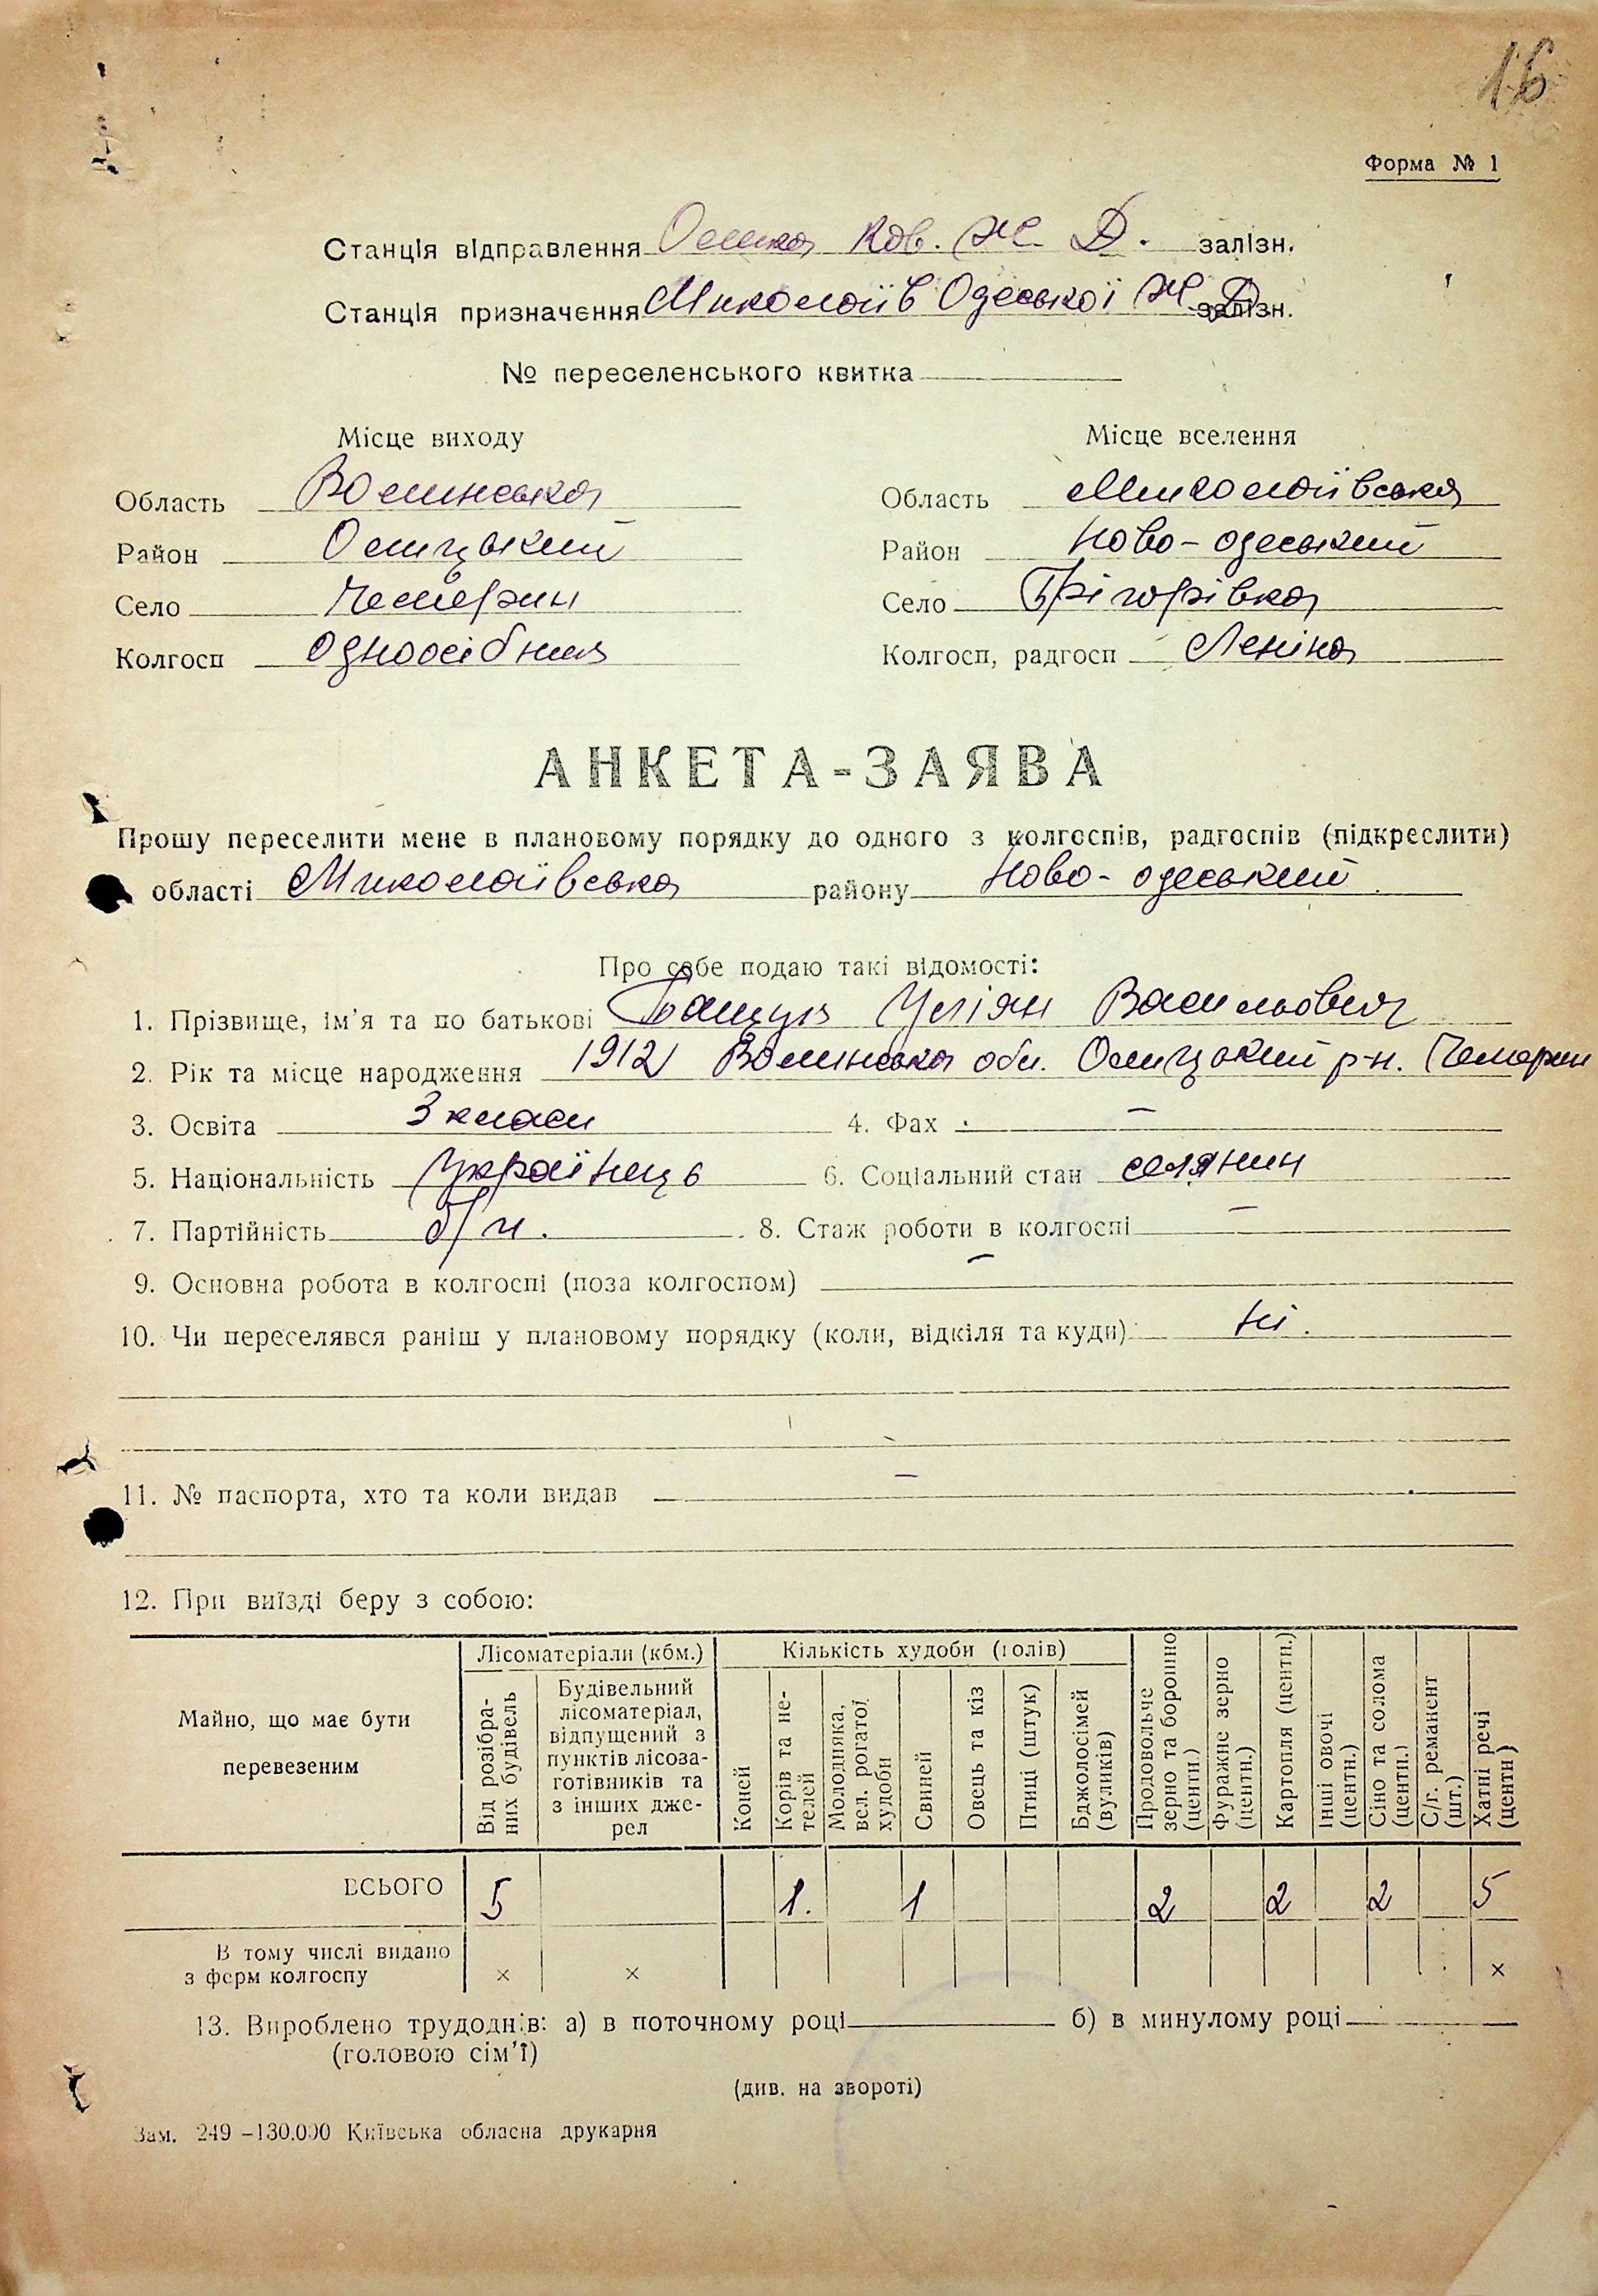 16
Форма № 1
Станція відправлення Олика Ков. Ж. Д. залізн.
Станція призначення Миколаїв Одеської Ж. Д. залізн.
№ переселенського квитка
Місце виходу
Місце вселення
Область Волинська
Область Миколаївська
Район Олицький
Район Ново-одеський
Село Чемерин
Село Грігорівка
Колгосп Одноосібник
Колгосп, радгосп Леніна
АНКЕТА-ЗАЯВА
Прошу переселити мене в плановому порядку до одного з колгоспів, радгоспів (підкреслити)
області Миколаївська району Ново-одеський
Про себе подаю такі відомості:
1. Прізвище, ім'я та по батькові Уліян Васильович
2. Рік та місце народження 1912 Волинська обл. Олицький р-н. Чемерин
3. Освіта 3 класи 4. Фах —
5. Національність Українець 6. Соціальний стан селянин
7. Партійність б/п. 8. Стаж роботи в колгоспі —
9. Основна робота в колгоспі (поза колгоспом) —
10. Чи переселявся раніш у плановому порядку (коли, відкіля та куди) Ні.
11. № паспорта, хто та коли видав —
12. При виїзді беру з собою:
Майно, що має бути перевезеним
Лісоматеріали (кбм.)
Кількість худоби (голів)
Від розібраних будівель
Будівельний лісоматеріал, відпущений з пунктів лісозаготівників та з інших джерел
Коней
Корів та нетелей
Молодняка, вел. рогатої худоби
Свиней
Овець та кіз
Птиці (штук)
Бджолосімей (вуликів)
Продовольче зерно та борошно (центн.)
Фуражне зерно (центн.)
Картопля (центн.)
Інші овочі (центн.)
Сіно та солома (центн.)
С/г. реманент (шт.)
Хатні речі (центн)
ВСЬОГО 5 1. 1 2 2 2 5
В тому числі видано з ферм колгоспу × × ×
13. Вироблено трудоднів: а) в поточному році б) в минулому році
(головою сім'ї)
(див. на звороті)
Зам. 249 –130.000 Київська обласна друкарня